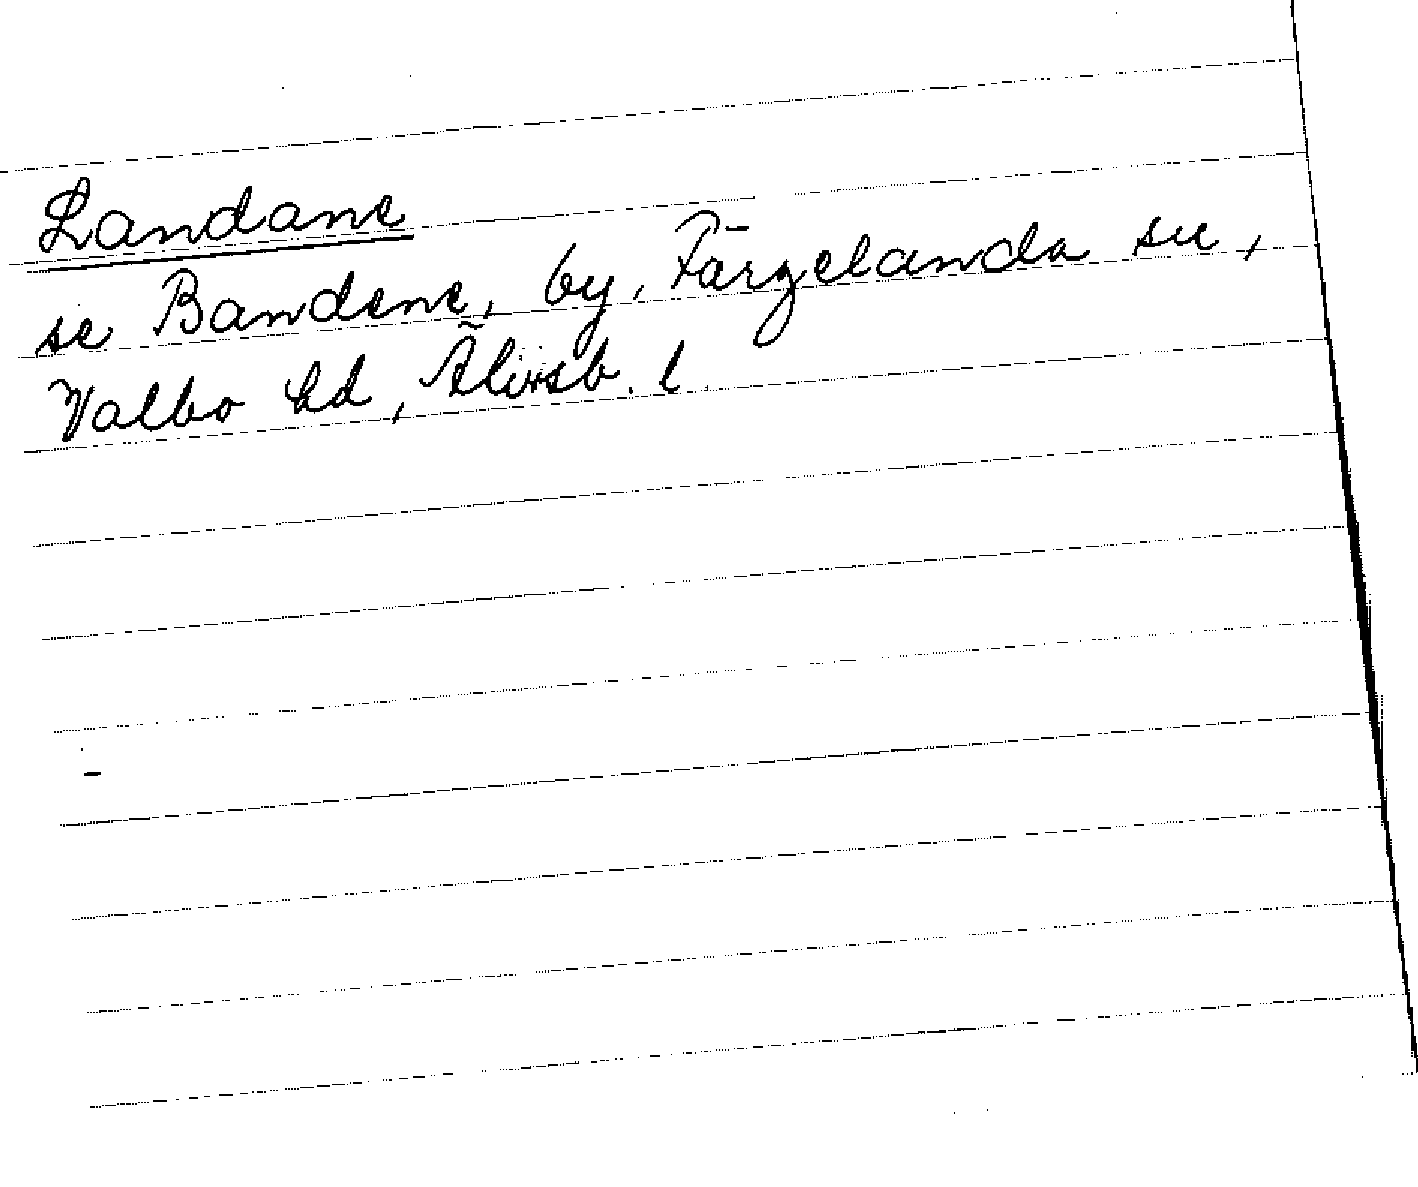 Landane
se Bandene, by, Färgelanda sn,
Valbo hd, Älvsb. l.